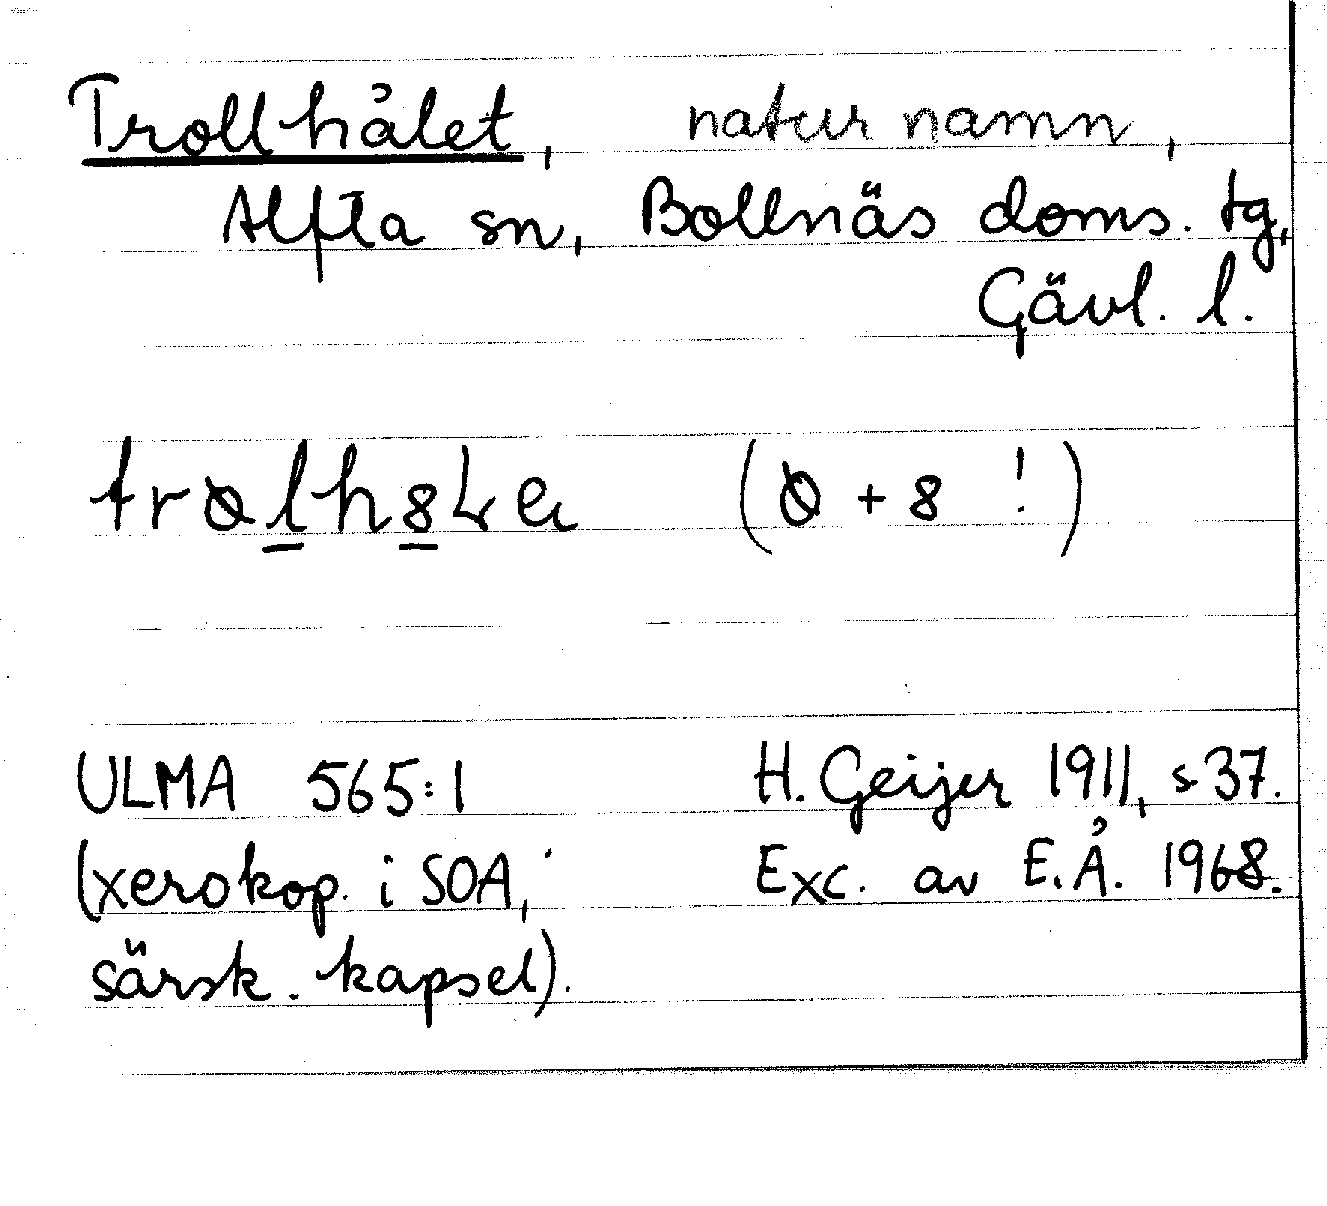 Trollhålet, naturnamn,
Alfta sn, Bollnäs doms. tg,
Gävl. l.
( + 8 !)
ULMA 565:1 H. Geijer 1911, s 37.
(xerokop. i SOA; Exc. av E.Å. 1968.
särsk. kapsel).